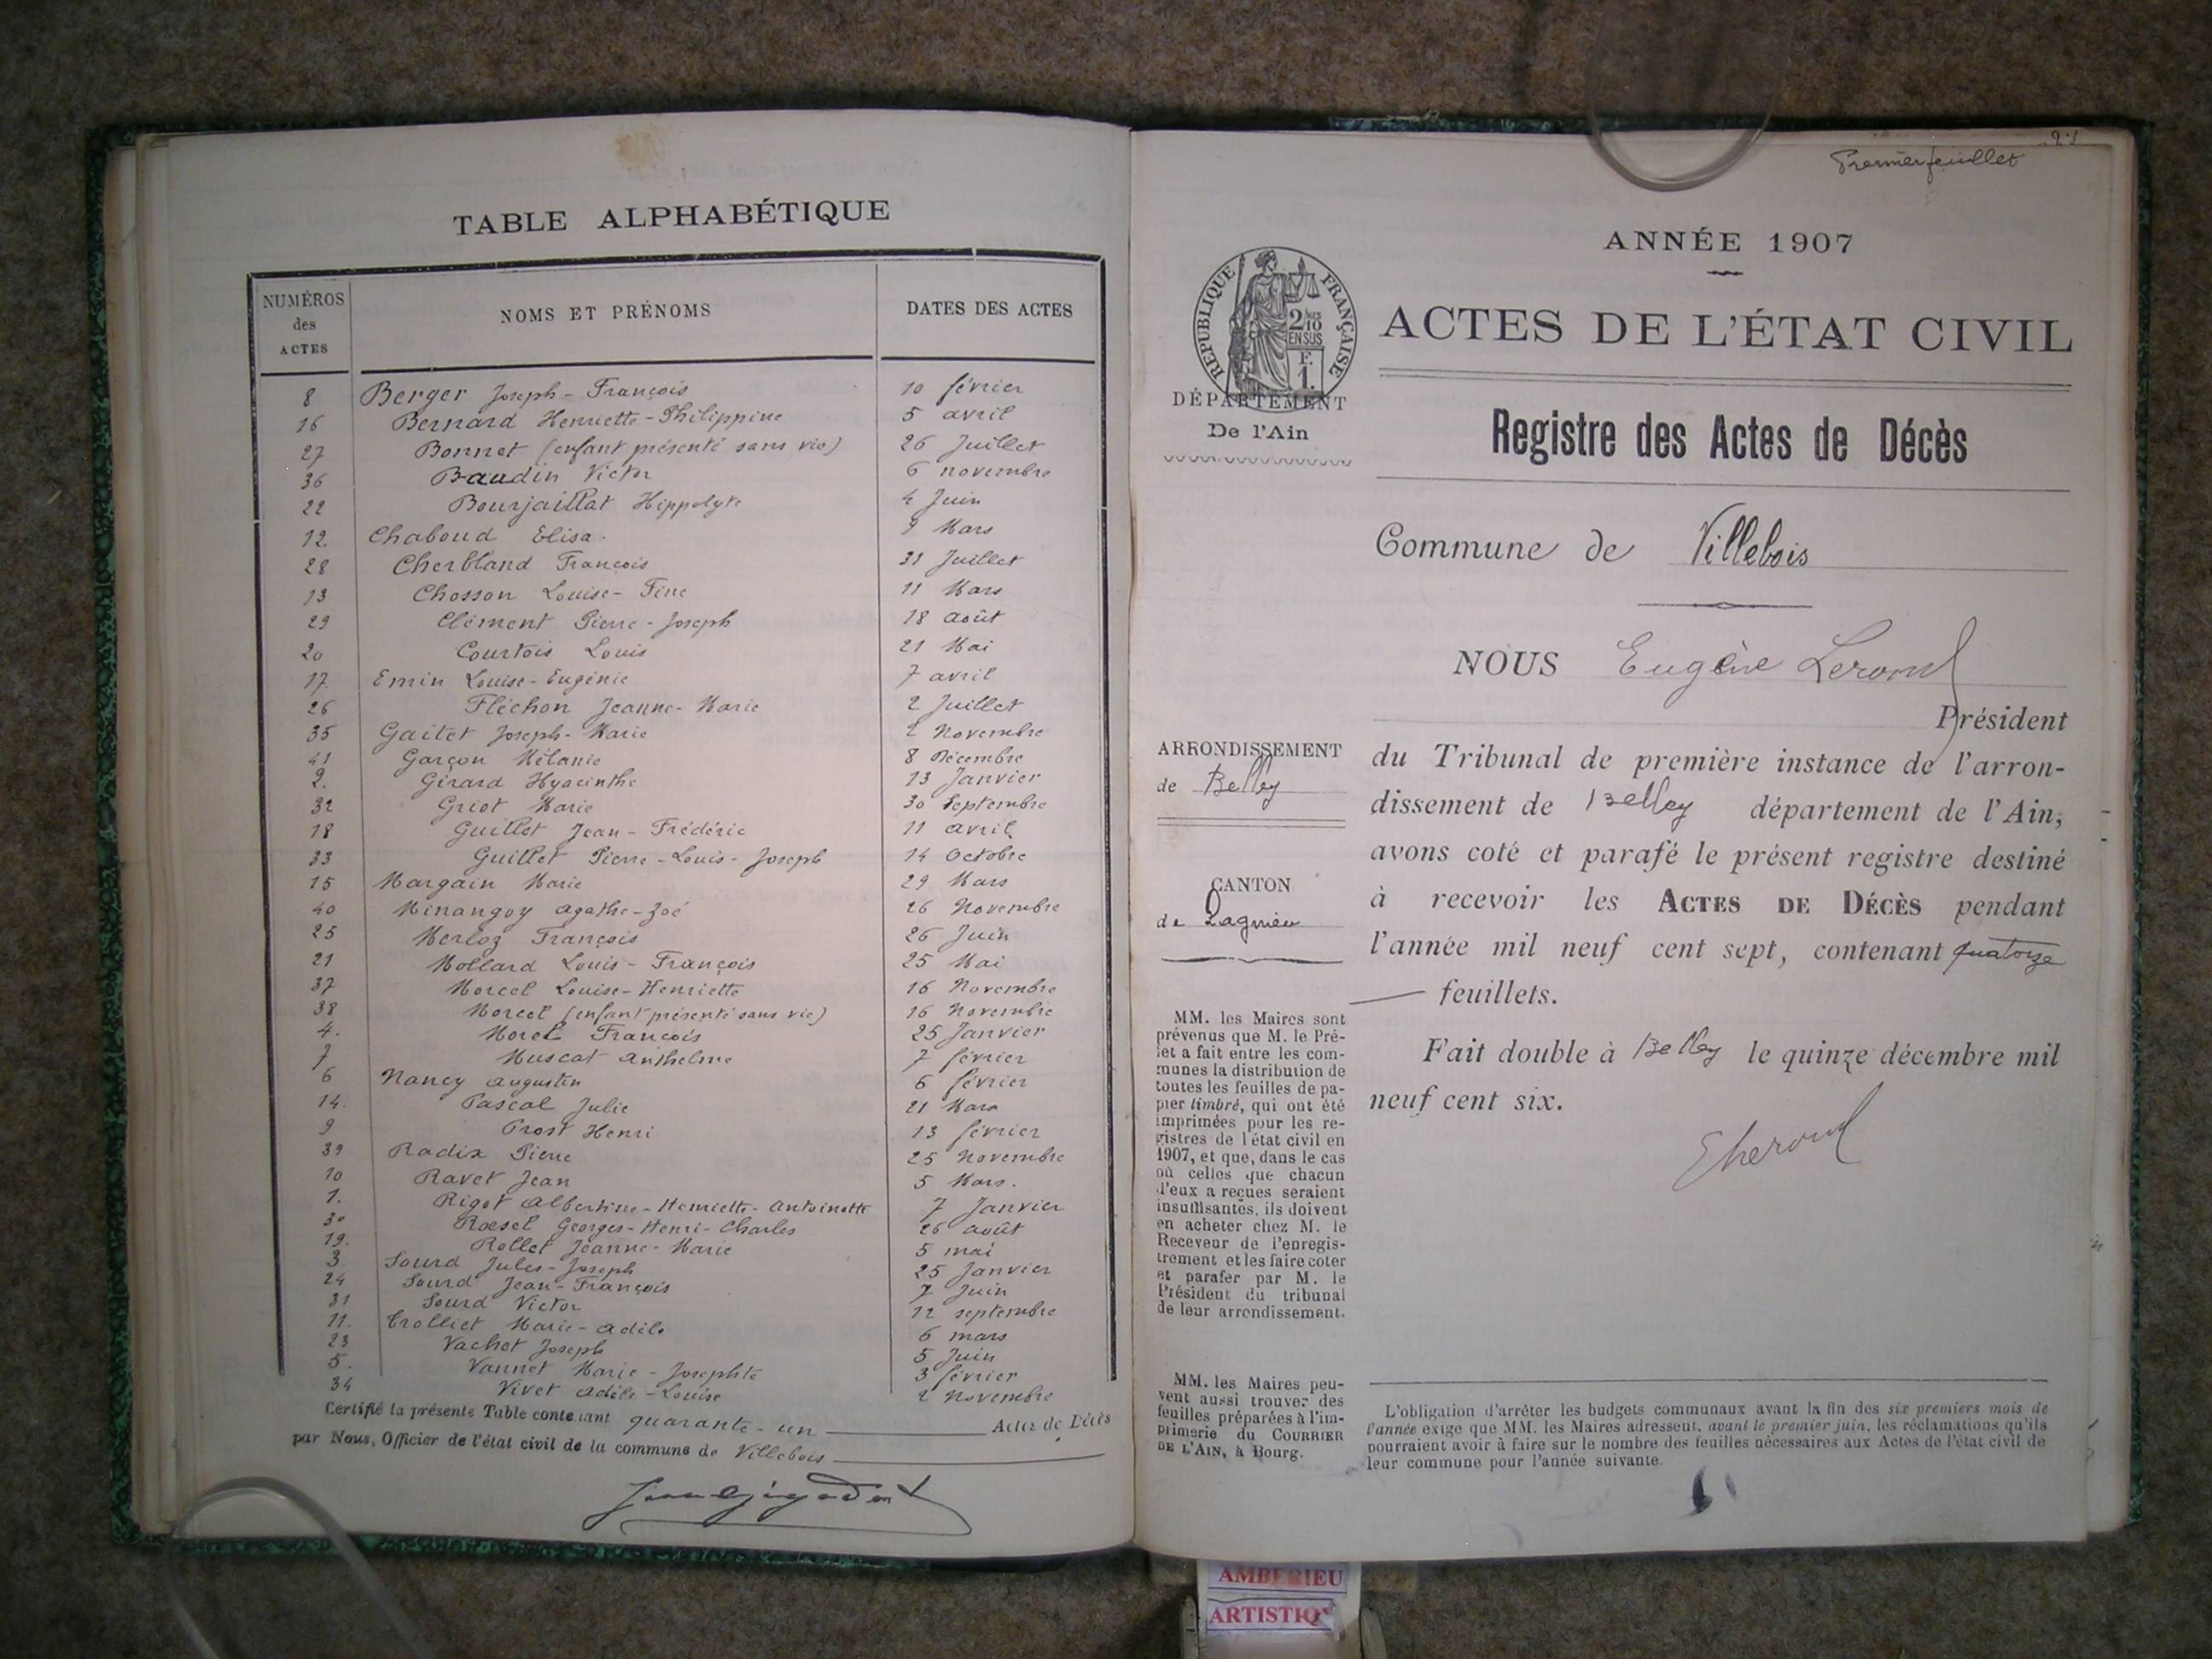 TABLE ALPHABÉTIQUE
NUMÉROS des ACTES NOMS ET PRÉNOMS DATES DES ACTES
8 Berger Joseph-François 10 février
16 Bernard Henriette-Philippine 5 avril
27 Bonnet (enfant présenté sans vie) 26 Juillet
36 Baudin Victor 6 novembre
22 Bourjaillat Hippolyte 4 Juin
12. Chaboud Elisa. 9 Mars
28 Cherbland François 31 Juillet
13 Chosson Louise-Fine 11 Mars
29 Clément Pierre-Joseph 18 août
20 Courtois Louis 21 Mai
17. Emin Louise-Eugénie 7 avril
26 Fléchon Jeanne-Marie 2 Juillet
35 Gaitet Joseph-Marie 2 Novembre
41 Garçon Mélanie 8 Décembre
2. Girard Hyacinthe 13 Janvier
32 Griot Marie 30 Septembre
18 Guillet Jean-Frédéric 11 avril
33 Guillet Pierre-Louis-Joseph 14 Octobre
15 Margain Marie 29 Mars
40 Minangoy agathe-Zoé 26 Novembre
25 Merloz François 26 Juin
21 Mollard Louis-François 25 Mai
37 Morcel Louise-Henriette 16 Novembre
38 Morcel (enfant présenté sans vie) 16 Novembre
4. Morel François 25 Janvier
7 Muscat anthelme 7 février
6 Nancy augustin 6 février
14. Pascal Julie 21 Mars
9 Prost Henri 13 février
39 Radix Pierre 25 Novembre
10 Ravet Jean 5 Mars.
1. Rigot albertine-Henriette-antoinette 7 Janvier
30 Roesel Georges-Henri-Charles 26 août
19. Rollet Jeanne-Marie 5 mai
3 Sourd Jules-Joseph 25 Janvier
24 Sourd Jean-François 7 Juin
31 Sourd Victor 12 septembre
11. Trolliet Marie-adèle 6 mars
23 Vachet Joseph 5 Juin
5. Vannet Marie-Josephte 3 février
34 Vivet adèle-Louise 2 Novembre
Certifié la présente Table contenant quarante-un Actes de Décès
par Nous, Officier de l'état civil de la commune de Villebois
Premier feuillet
ANNÉE 1907
RÉPUBLIQUE FRANÇAISE
2/10 EN SUS
F. 1.
ACTES DE L'ÉTAT CIVIL
DÉPARTEMENT
De l'Ain
Registre des Actes de Décès
Commune de Villebois
NOUS Eugène Lerond
Président
du Tribunal de première instance de l'arron-
dissement de Belley département de l'Ain,
avons coté et parafé le présent registre destiné
à recevoir les ACTES DE DÉCÈS pendant
l'année mil neuf cent sept, contenant quatorze
feuillets.
Fait double à Belley le quinze décembre mil
neuf cent six.
ARRONDISSEMENT
de Belley
CANTON
de Lagnieu
MM. les Maires sont
prévenus que M. le Pré-
fet a fait entre les com-
munes la distribution de
toutes les feuilles de pa-
pier timbré, qui ont été
imprimées pour les re-
gistres de l'état civil en
1907, et que, dans le cas
où celles que chacun
d'eux a reçues seraient
insuffisantes, ils doivent
en acheter chez M. le
Receveur de l'enregis-
trement et les faire coter
et parafer par M. le
Président du tribunal
de leur arrondissement.
MM. les Maires peu-
vent aussi trouver des
feuilles préparées à l'im-
primerie du COURRIER
DE L'AIN, à Bourg.
L'obligation d'arrêter les budgets communaux avant la fin des six premiers mois de
l'année exige que MM. les Maires adressent, avant le premier juin, les réclamations qu'ils
pourraient avoir à faire sur le nombre des feuilles nécessaires aux Actes de l'état civil de
leur commune pour l'année suivante.
AMBERIEU
ARTISTIQ